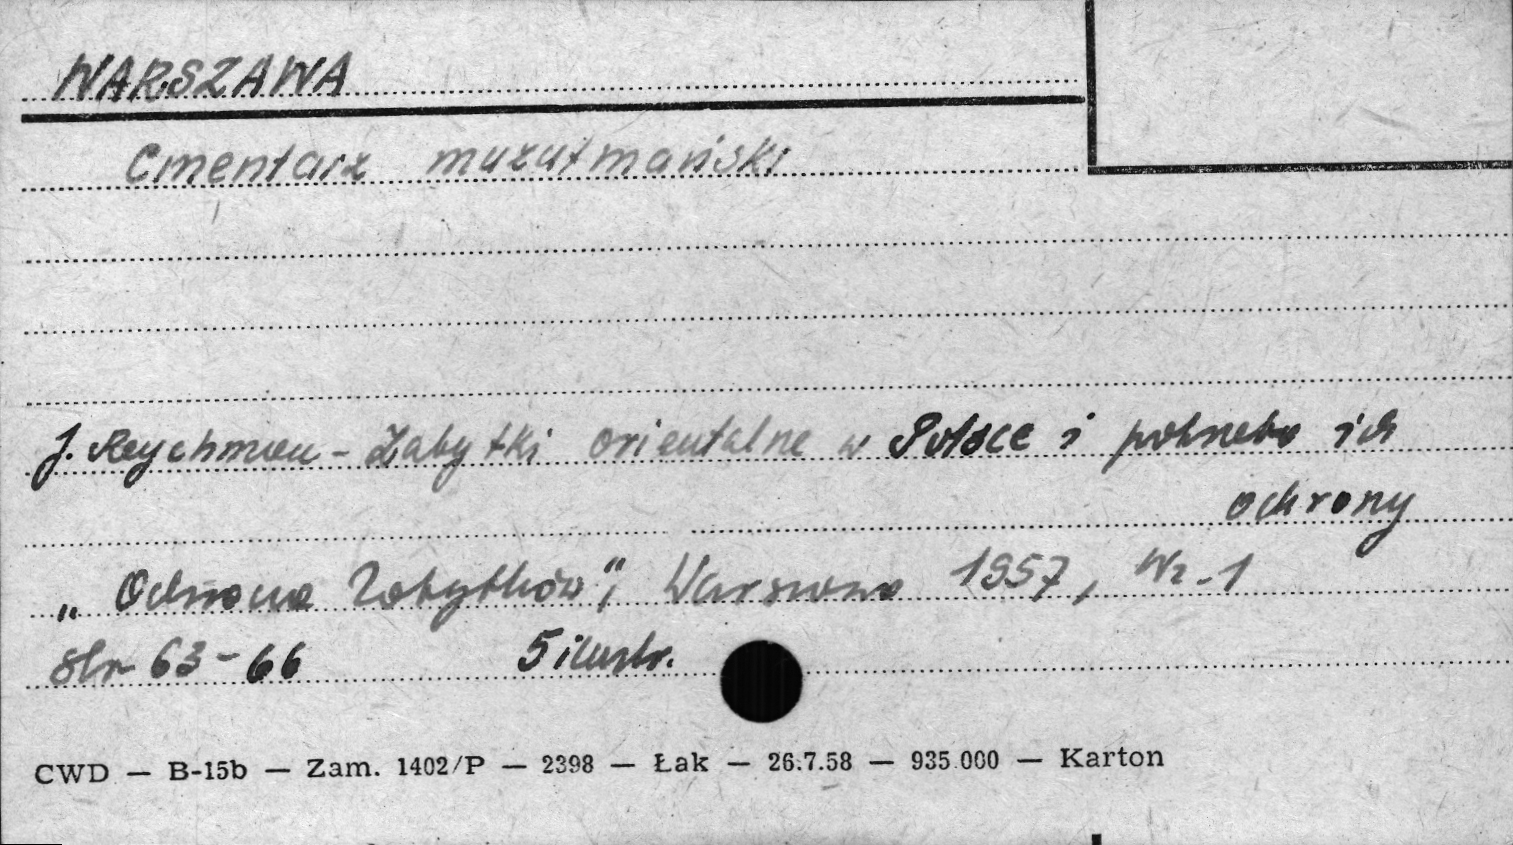 WARSZAWA
Cmentarz muzułmański
J. Reychman - Zabytki orientalne w Polsce i potrzeba ich
ochrony
„Ochrona Zabytków", Warszawa 1957, Nr. 1
str 63-66 5 ilustr.
CWD — B-15b — Zam. 1402/P — 2398 — Łak — 26.7.58 — 935.000 — Karton